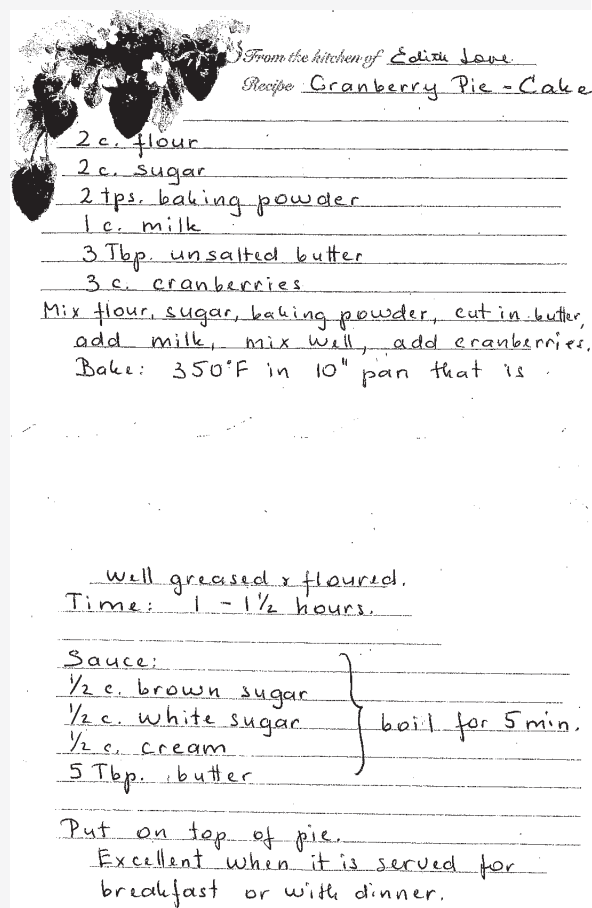 From the kitchen of Edith Love
Recipe Cranberry Pie - Cake
2 c. flour
2 c. sugar
2 tps. baking powder
1 c. milk
3 Tbp. unsalted butter
3 c. cranberries
Mix flour, sugar, baking powder, cut in butter,
add milk, mix well, add cranberries.
Bake: 350°F in 10" pan that is
well greased & floured.
Time: 1 - 1½ hours.
Sauce:
½ c. brown sugar
½ c. white sugar
½ c. cream
5 Tbp. butter
boil for 5 min.
Put on top of pie.
Excellent when it is served for
breakfast or with dinner.